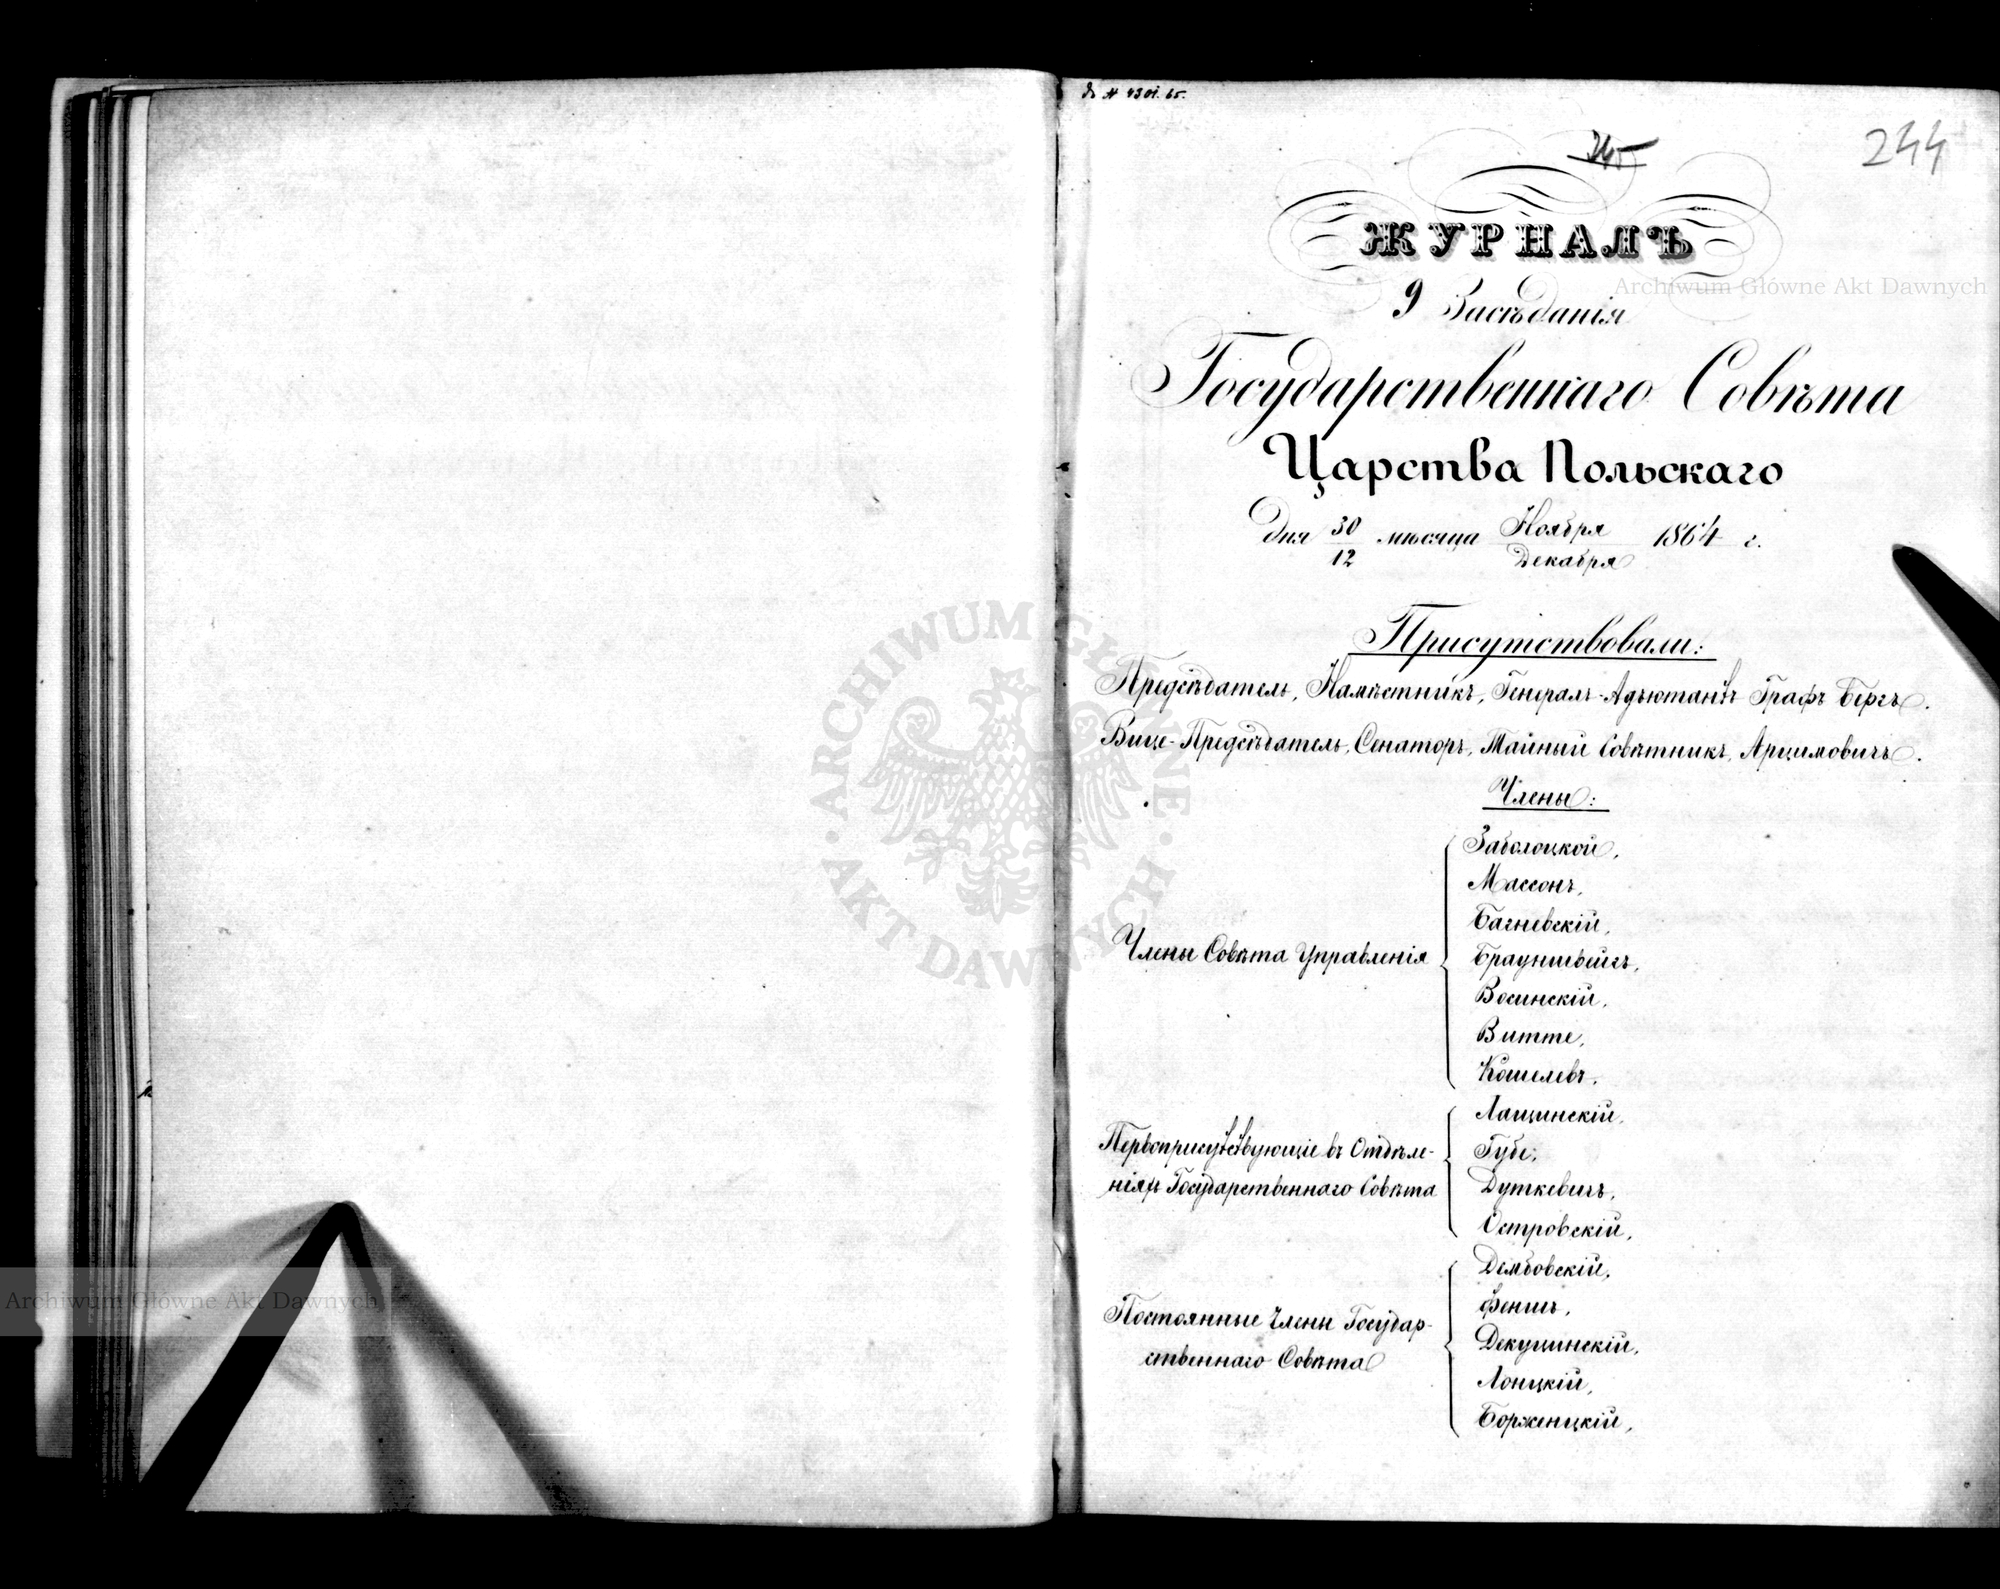 244
ЖУРНАЛЪ
9 Засѣданія
Государственнаго Совѣта
Царства Польскаго
Дня 30/12 мѣсяца Ноября/Декабря 1864 г.
Присутствовали:
Предсѣдатель, Намѣстникъ, Генералъ-Адъютантъ Графъ Бергъ.
Вице-Предсѣдатель, Сенаторъ, Тайный Совѣтникъ, Арцимовичъ.
Члены:
Члены Совѣта Управленія
Заболоцкой,
Массонъ,
Багневскій,
Брауншвейгъ,
Восинскій,
Витте,
Кошелевъ,
Первоприсутствующіе въ Отдѣле-
ніяхъ Государственнаго Совѣта
Лащинскій,
Губе,
Дуткевичъ,
Островскій,
Постоянные Члены Государ-
ственнаго Совѣта
Дембовскій,
Феншъ,
Декучинскій,
Лонцкій,
Борженцкій,
Archiwum Główne Akt Dawnych
ARCHIWUM GŁÓWNE AKT DAWNYCH
Archiwum Główne Akt Dawnych